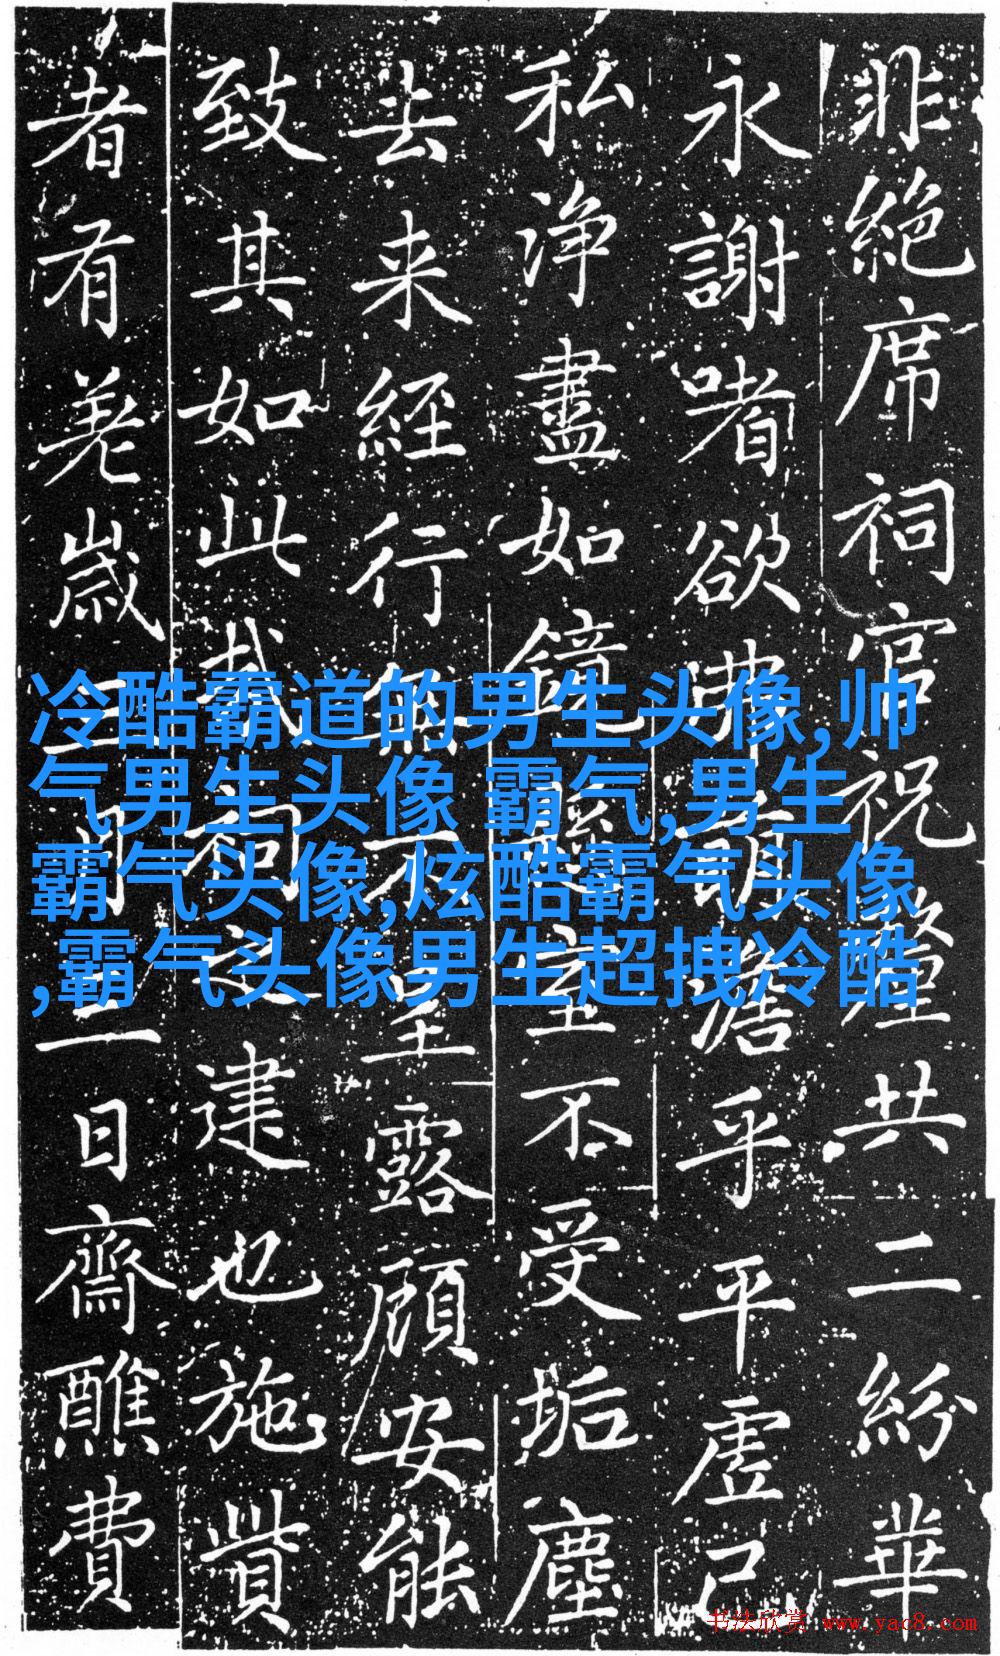 非絶席祠官祝釐共二紛華
永謝嗜欲
乎平虚己
私浄盡如鏡
室不受垢塵
去来経行
至露顧安能
致其如此
祠之建也施貲
者有羗歲
二日齋醮費
冷酷霸道的男生头像,帅
气男生头像 霸气,男生
霸气头像,炫酷霸气头像
,霸气头像男生超拽冷酷
书法欣赏 www.yac8.com